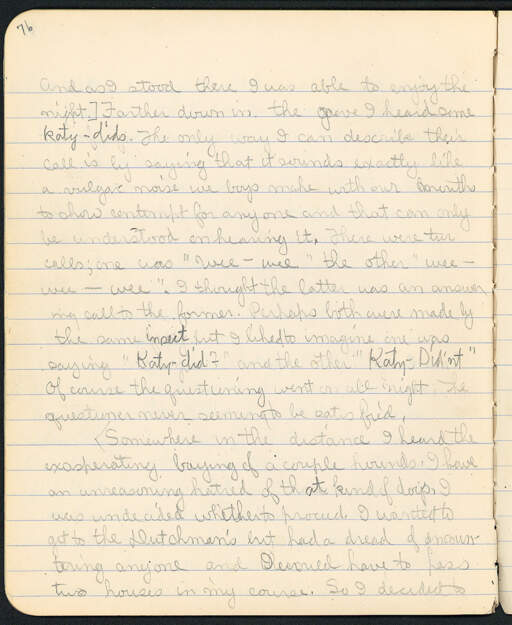 76
And as I stood there I was able to enjoy the
night.] Farther down in the grove I heard some
Katy-dids. The only way I can describe their
call is by saying that it sounds exactly like
a vulgar noise we boys make with our mouths
to show contempt for any one and that can only
be understood on hearing it. There were two
calls; one was "wee-wee" the other "wee-
wee-wee". I thought the latter was an answer
ing call to the former. Perhaps both were made by
the same insect but I liked to imagine one was
saying "Katy-did?" and the other "Katy-Didn't"
Of course the questioning went on all night. The
questioner never seeming to be satisfied.
(Somewhere in the distance I heard the
exasperating baying of a couple hounds. I have
an unreasoning hatred of that kind of dogs. I
was undecided whether to proceed. I wanted to
get to the Dutchman's but had a dread of encoun-
tering anyone and I would have to pass
two houses in my course. So I decided to